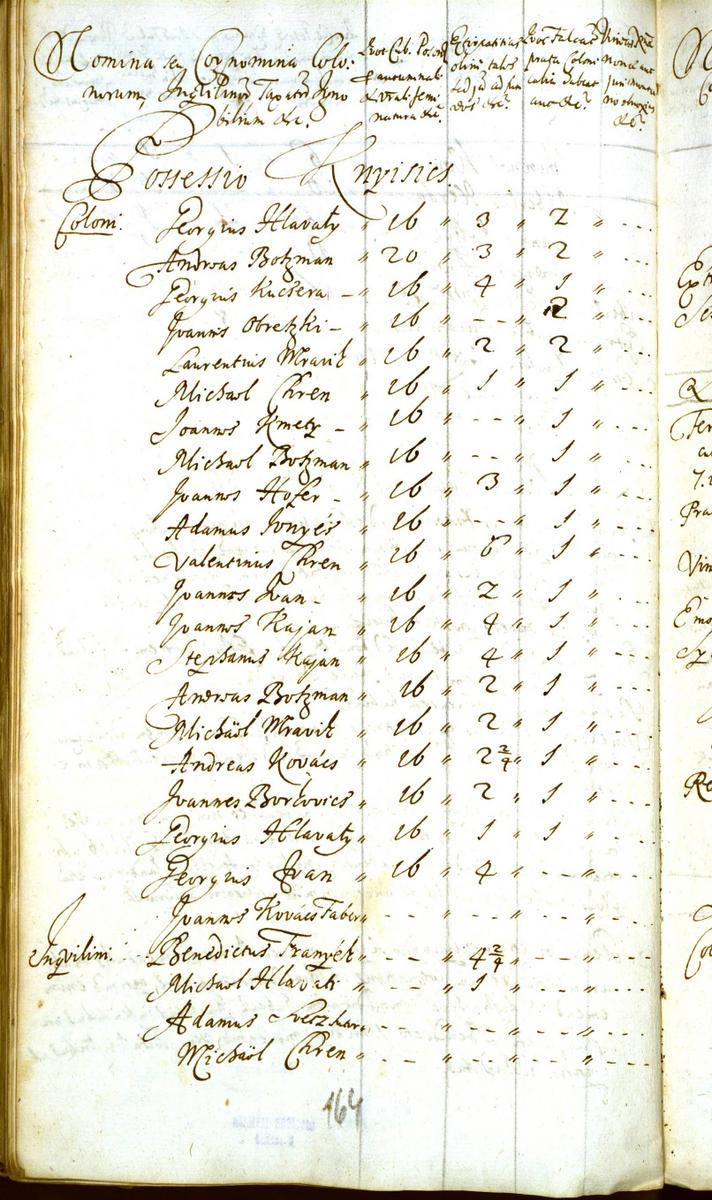 Nomina seu Cognomina Colo-
norum, Inqvilinorum Taxatorum Igno
bilium &c.
Quot Cub. Poson.
& autumnali
& vernali semi
natura &c.
Extirpatitias
olim tales
sed jam ad
Quot Falcas
prata Coloni
calia habeat
aut &c.
Vineas
non aut
juri mont
no obnoxias
&c.
Possessio Knyisics
Coloni. Georgius Hlavaty " 16 " 3 " 2 " ...
Andreas Botzman " 20 " 3 " 2 " ...
Georgius Kucsera - " 16 " 4 " 1 " ...
Joannes Obretzki - " 16 " - - " 2 " ...
Laurentius Mravik " 16 " 2 " 2 " ...
Michael Chren " 16 " 1 " 1 " ...
Joannes Kmety - " 16 " - - " 1 " ...
Michael Botzman " 16 " - - " 1 " ...
Joannes Hofer - " 16 " 3 " 1 " ...
Adamus Ionyés " 16 " - - " 1 " ...
Valentinus Chren " 16 " 6 " 1 " ...
Joannes Ivan - " 16 " 2 " 1 " ...
Joannes Kajan " 16 " 4 " 1 " ...
Stephanus Kajan " 16 " 4 " 1 " ...
Andreas Botzman " 16 " 2 " 1 " ...
Michaël Mravik " 16 " 2 " 1 " ...
Andreas Kovács " 16 " 2 2/4 " 1 " ...
Joannes Borkovics " 16 " 2 " 1 " ...
Georgius Hlavaty " 16 " 1 " 1 " ...
Georgius Ivan " 16 " 4 " - - " ...
Joannes Kovacs Faber " - - " - - " - - " ...
Inqvilini. Benedictus Franyek " - - " 4 2/4 " - - " ...
Michael Hlavati " - - " 1 " - - " ...
Adamus " - - " - - " - - " ...
Michaël Chren " - - " - - " - - " ...
164